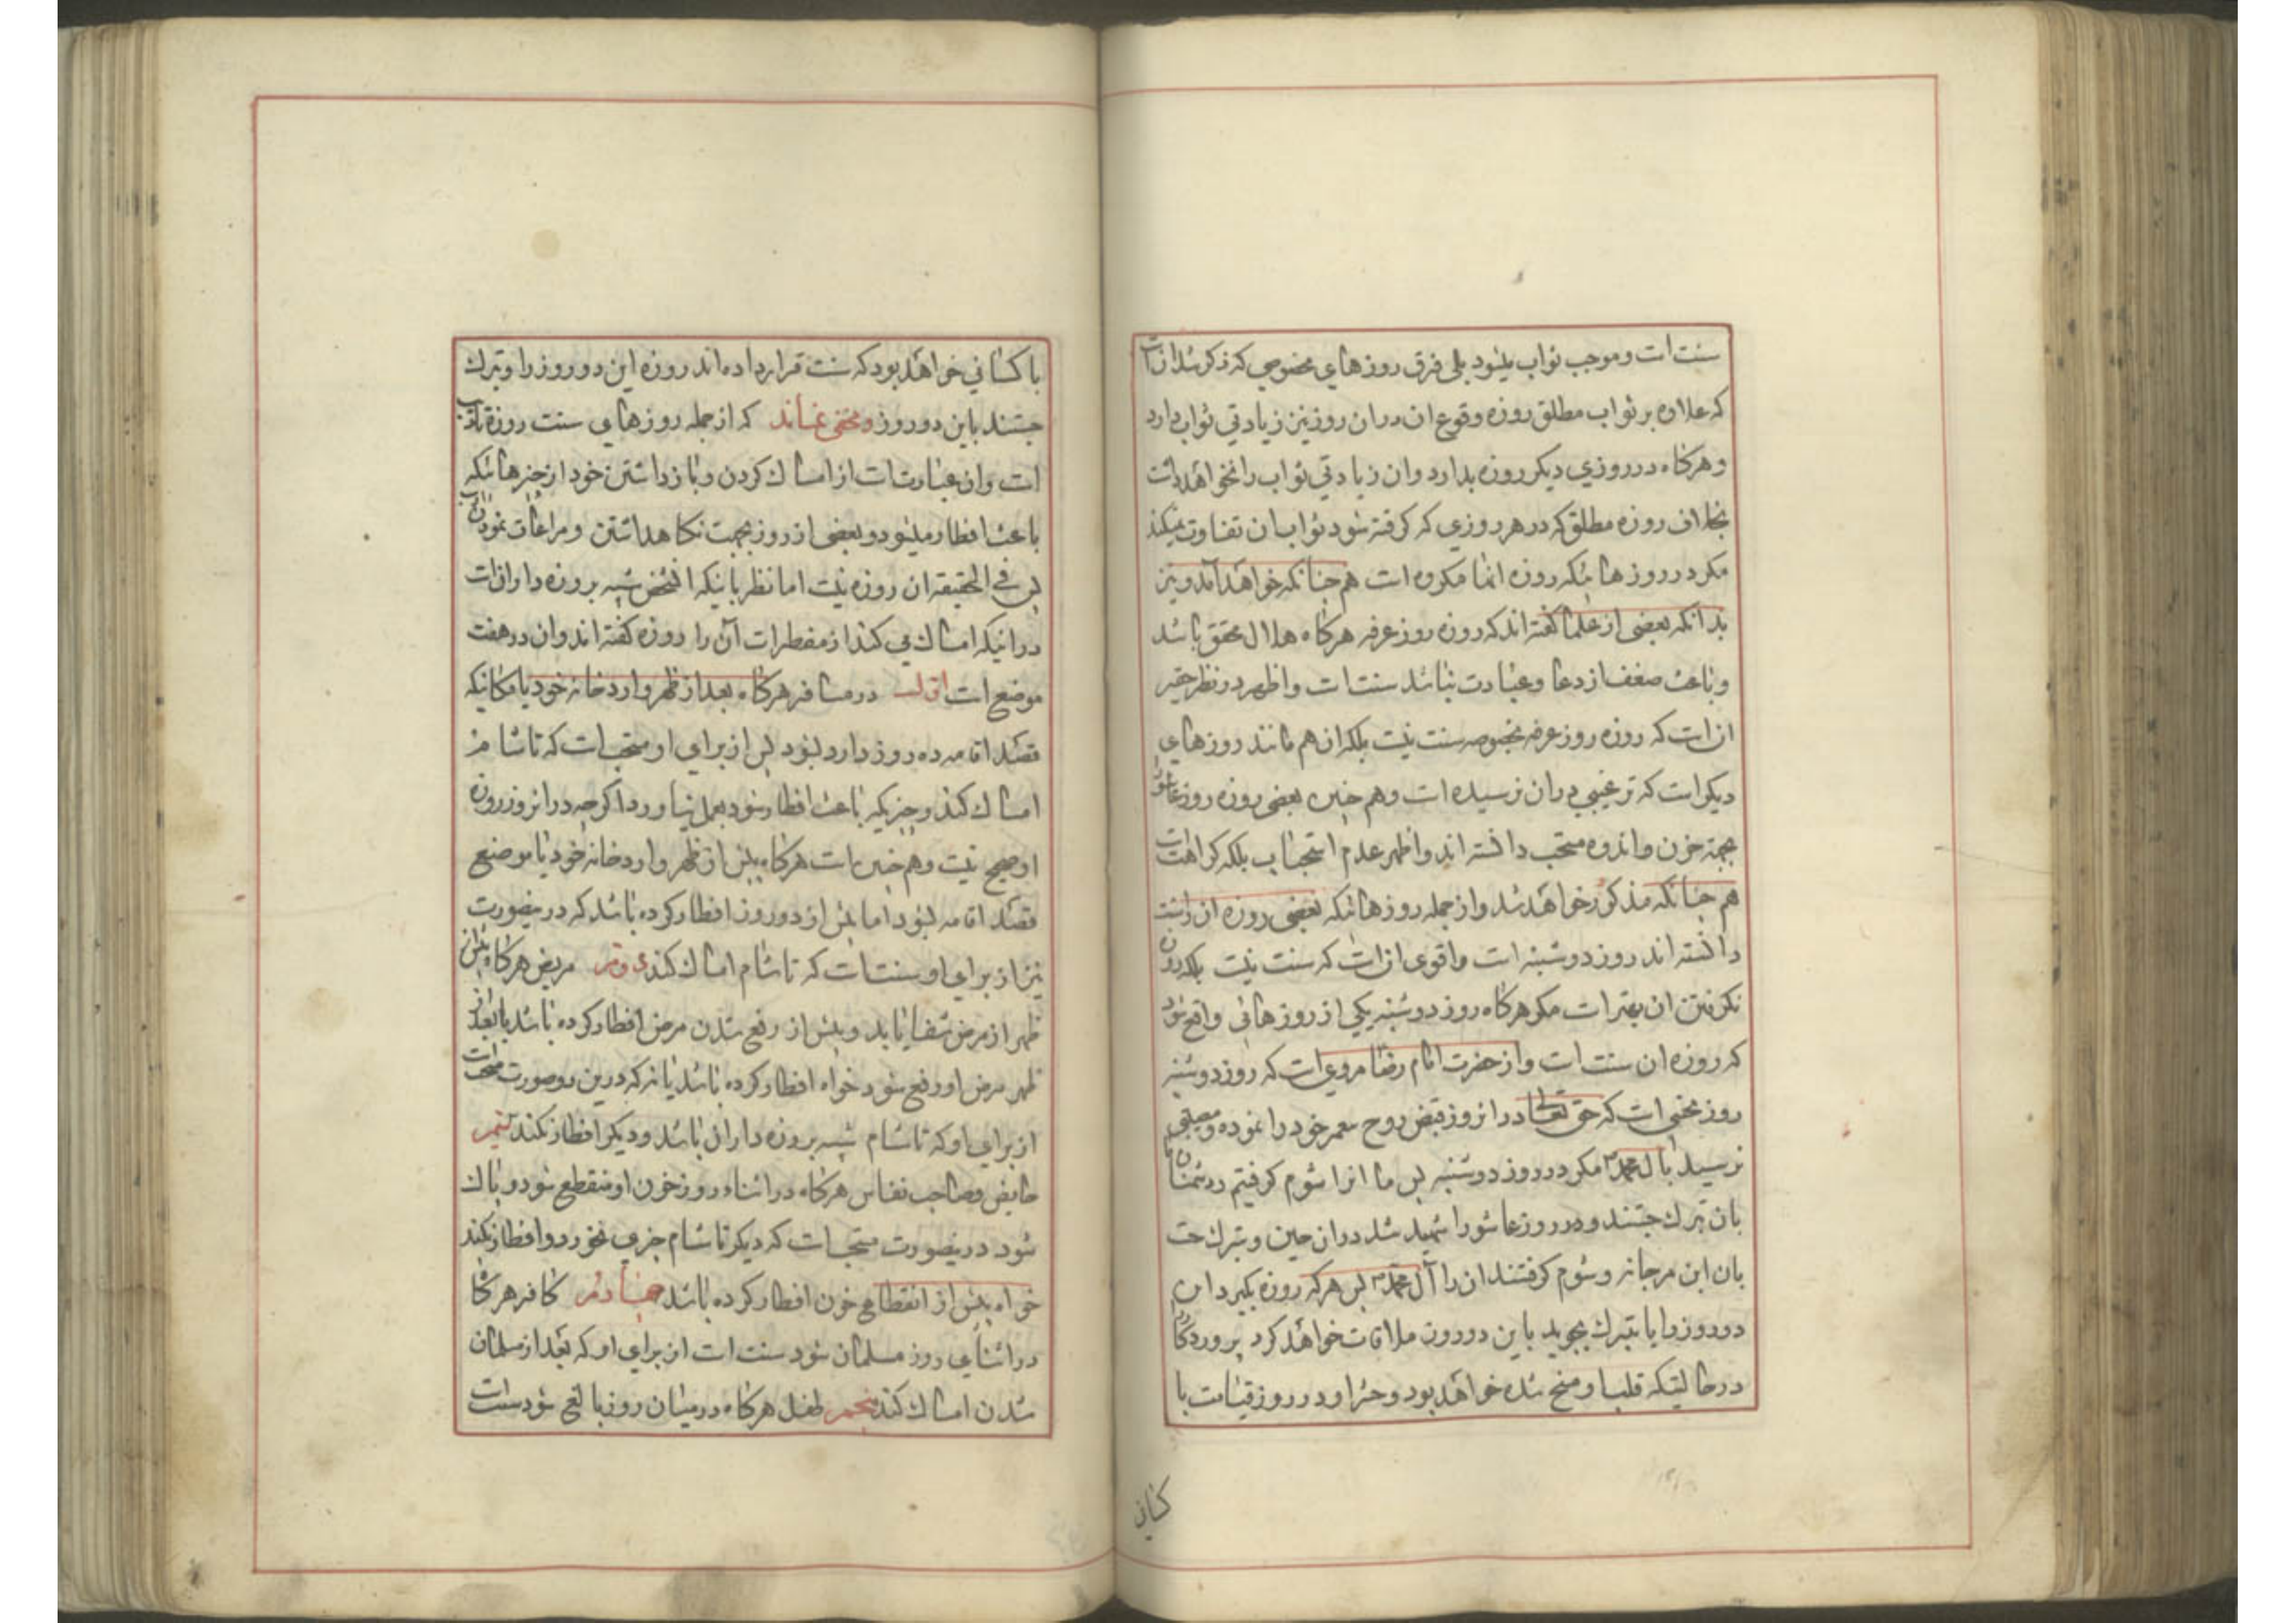 سنت است و موجب ثواب میشود بلی فرق روزهای مخصوصی که ذکر شد آنست
که علاوه بر ثواب مطلق روزه وقوع ان در ان روز نیز زیادتی ثواب دارد
و هرکاه در روزی دیکر روزه بدارد و ان زیادتی ثواب را نخواهد داشت
بخلاف روزه مطلق که در هر روزی که کرفته شود ثواب ان تفاوت نمیکند
مکر در روزهائیکه روزه انها مکروه است هم چنانکه خواهد آمد و نیز
بدانکه بعضی از علما کفته اند که روزه روز عرفه هرکاه هلال محقق باشد
و باعث ضعف از دعا و عبادت نباشد سنت است و اظهر در نظر حقیر
ان است که روزه روز عرفه بخصوصه سنت نیست بلکه ان هم مانند روزهای
دیکر است که ترغیبی در ان نرسیده است و هم چنین بعضی روزه روز عاشورا
بجهة حزن و اندوه مستحب دانسته اند و اظهر عدم استحباب بلکه کراهت است
هم چنانکه مذکور خواهد شد و از جمله روزهائیکه بعضی روزه ان را سنت
دانسته اند روز دوشنبه است و اقوی ان است که سنت نیست بلکه روزه
نکرفتن ان بهتر است مکر هرکاه روز دوشنبه یکی از روزهائی واقع شود
که روزه ان سنت است و از حضرت امام رضا مروی است که روز دوشنبه
روز نحسی است که حق تعالی در انروز قبض روح پیغمبر خود را نموده و مصیبتی
نرسید بال محمد مکر در روز دوشنبه پس ما انرا شوم کرفتیم و دشمنان ما
بان تبرك جستند و در روز عاشورا شهید شد در ان حسین و تبرك جست
بان ابن مرجانه و شوم کرفتند ان را آل محمد پس هر که روزه بکیرد این
دو روز را یا تبرك بجوید باین دو روز ملاقات خواهد کرد پروردکار را
در حالتیکه قلب او مسخ شده خواهد بود و حشر او در روز قیامت با
کسانی
با کسانی خواهد بود که سنت قرار داده اند روزه این دو روز را و تبرك
جستند باین دو روز و مخفی نماند که از جمله روزهای سنت روزه تادیب
است و ان عبارتست از امساك کردن و باز داشتن خود از چیزهائیکه
باعث افطار میشود و بعضی از روز بجهت نکاهداشتن و مراعات نمودن اداب
پس فی الحقیقه ان روزه نیست اما نظر باینکه انشخص شبیه بروزه داران است
در اینکه امساك می کند از مفطرات آن را روزه کفته اند و ان در هفت
موضع است اول در مسافر هرکاه بعد از ظهر وارد خانه خود یا مکانیکه
قصد اقامه ده روز دارد بشود پس از برای او مستحب است که تا شام
امساك کند و چیزیکه باعث افطار شود بعمل نیاورد اکرچه در انروز روزه
او صحیح نیست و هم چنین است هرکاه پیش از ظهر وارد خانه خود یا موضع
قصد اقامه بشود اما پیش از دو روز افطار کرده باشد که درینصورت
نیز از برای او سنت است که تا شام امساك کند دویم مریض هرکاه پیش از
ظهر از مرض شفا یابد و پیش از رفع شدن مرض افطار کرده باشد یا بعد از
ظهر مرض او رفع شود خواه افطار کرده باشد یا نه که درین دو صورت مستحب است
از برای او که تا شام شبیه بروزه داران باشد و دیکر افطار نکند سیم
حایض و صاحب نفاس هرکاه در اثناء روز خون او منقطع شود و پاك
شود درینصورت مستحب است که دیکر تا شام چیزی نخورد و افطار نکند
خواه پیش از انقطاع خون افطار کرده باشد چهارم کافر هرکاه
در اثنای روز مسلمان شود سنت است از برای او که بعد از مسلمان
شدن امساك کند پنجم طفل هرکاه در میان روز بالغ شود سنت است